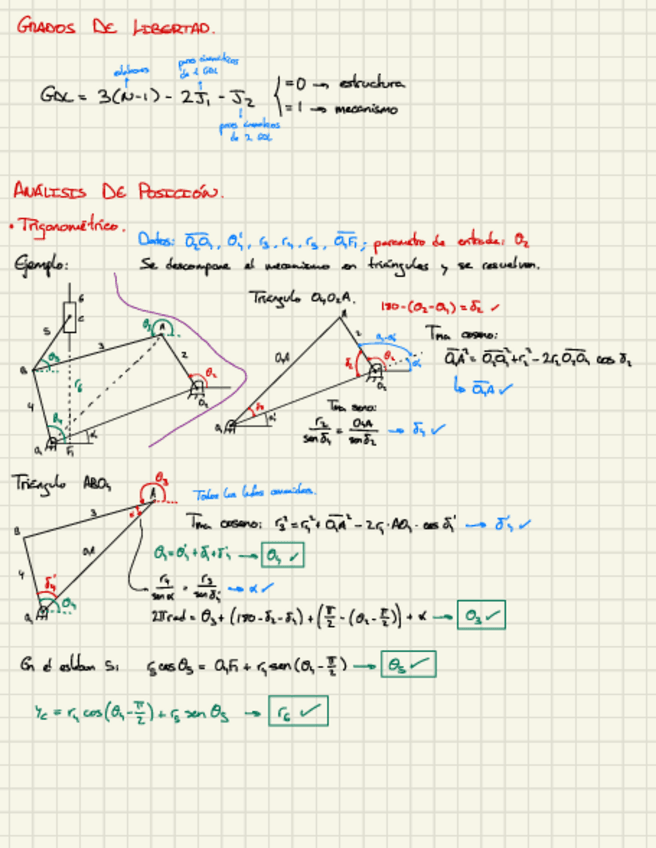 GRADOS DE LIBERTAD.
eslabones
pares cinemáticos de 1 GDL
GDL = 3(N-1) - 2J₁ - J₂
= 0 → estructura
= 1 → mecanismo
pares cinemáticos de 2 GDL
ANÁLISIS DE POSICIÓN.
• Trigonométrico.
Datos: O₂O₄, θ₁', r₃, r₄, r₅, O₄F₁; parámetro de entrada: θ₂
Ejemplo:
Se descompone el mecanismo en triángulos y se resuelven.
Triángulo O₄O₂A.
180-(θ₂-θ₁) = δ₂ ✓
Tma coseno:
O₄A² = O₂O₄² + r₂² - 2r₂ O₂O₄ cos δ₂
↳ O₄A ✓
Tma seno:
r₂/sen δ₄ = O₄A/sen δ₂ → δ₄ ✓
Triángulo ABO₄
Todos los lados conocidos.
Tma coseno: r₃² = r₄² + O₄A² - 2r₄·AO₄·cos δ₄' → δ₄' ✓
θ₄ = θ₁' + δ₄ + δ₄' → θ₄ ✓
r₄/sen α = r₃/sen δ₄' → α ✓
2π rad = θ₃ + (180-δ₂-δ₄) + (π/2 - (θ₂ - π/2)) + α → θ₃ ✓
En el eslabón 5: r₅ cos θ₅ = O₄F₁ + r₄ sen(θ₄ - π/2) → θ₅ ✓
Y_C = r₄ cos(θ₄ - π/2) + r₅ sen θ₅ → r₆ ✓